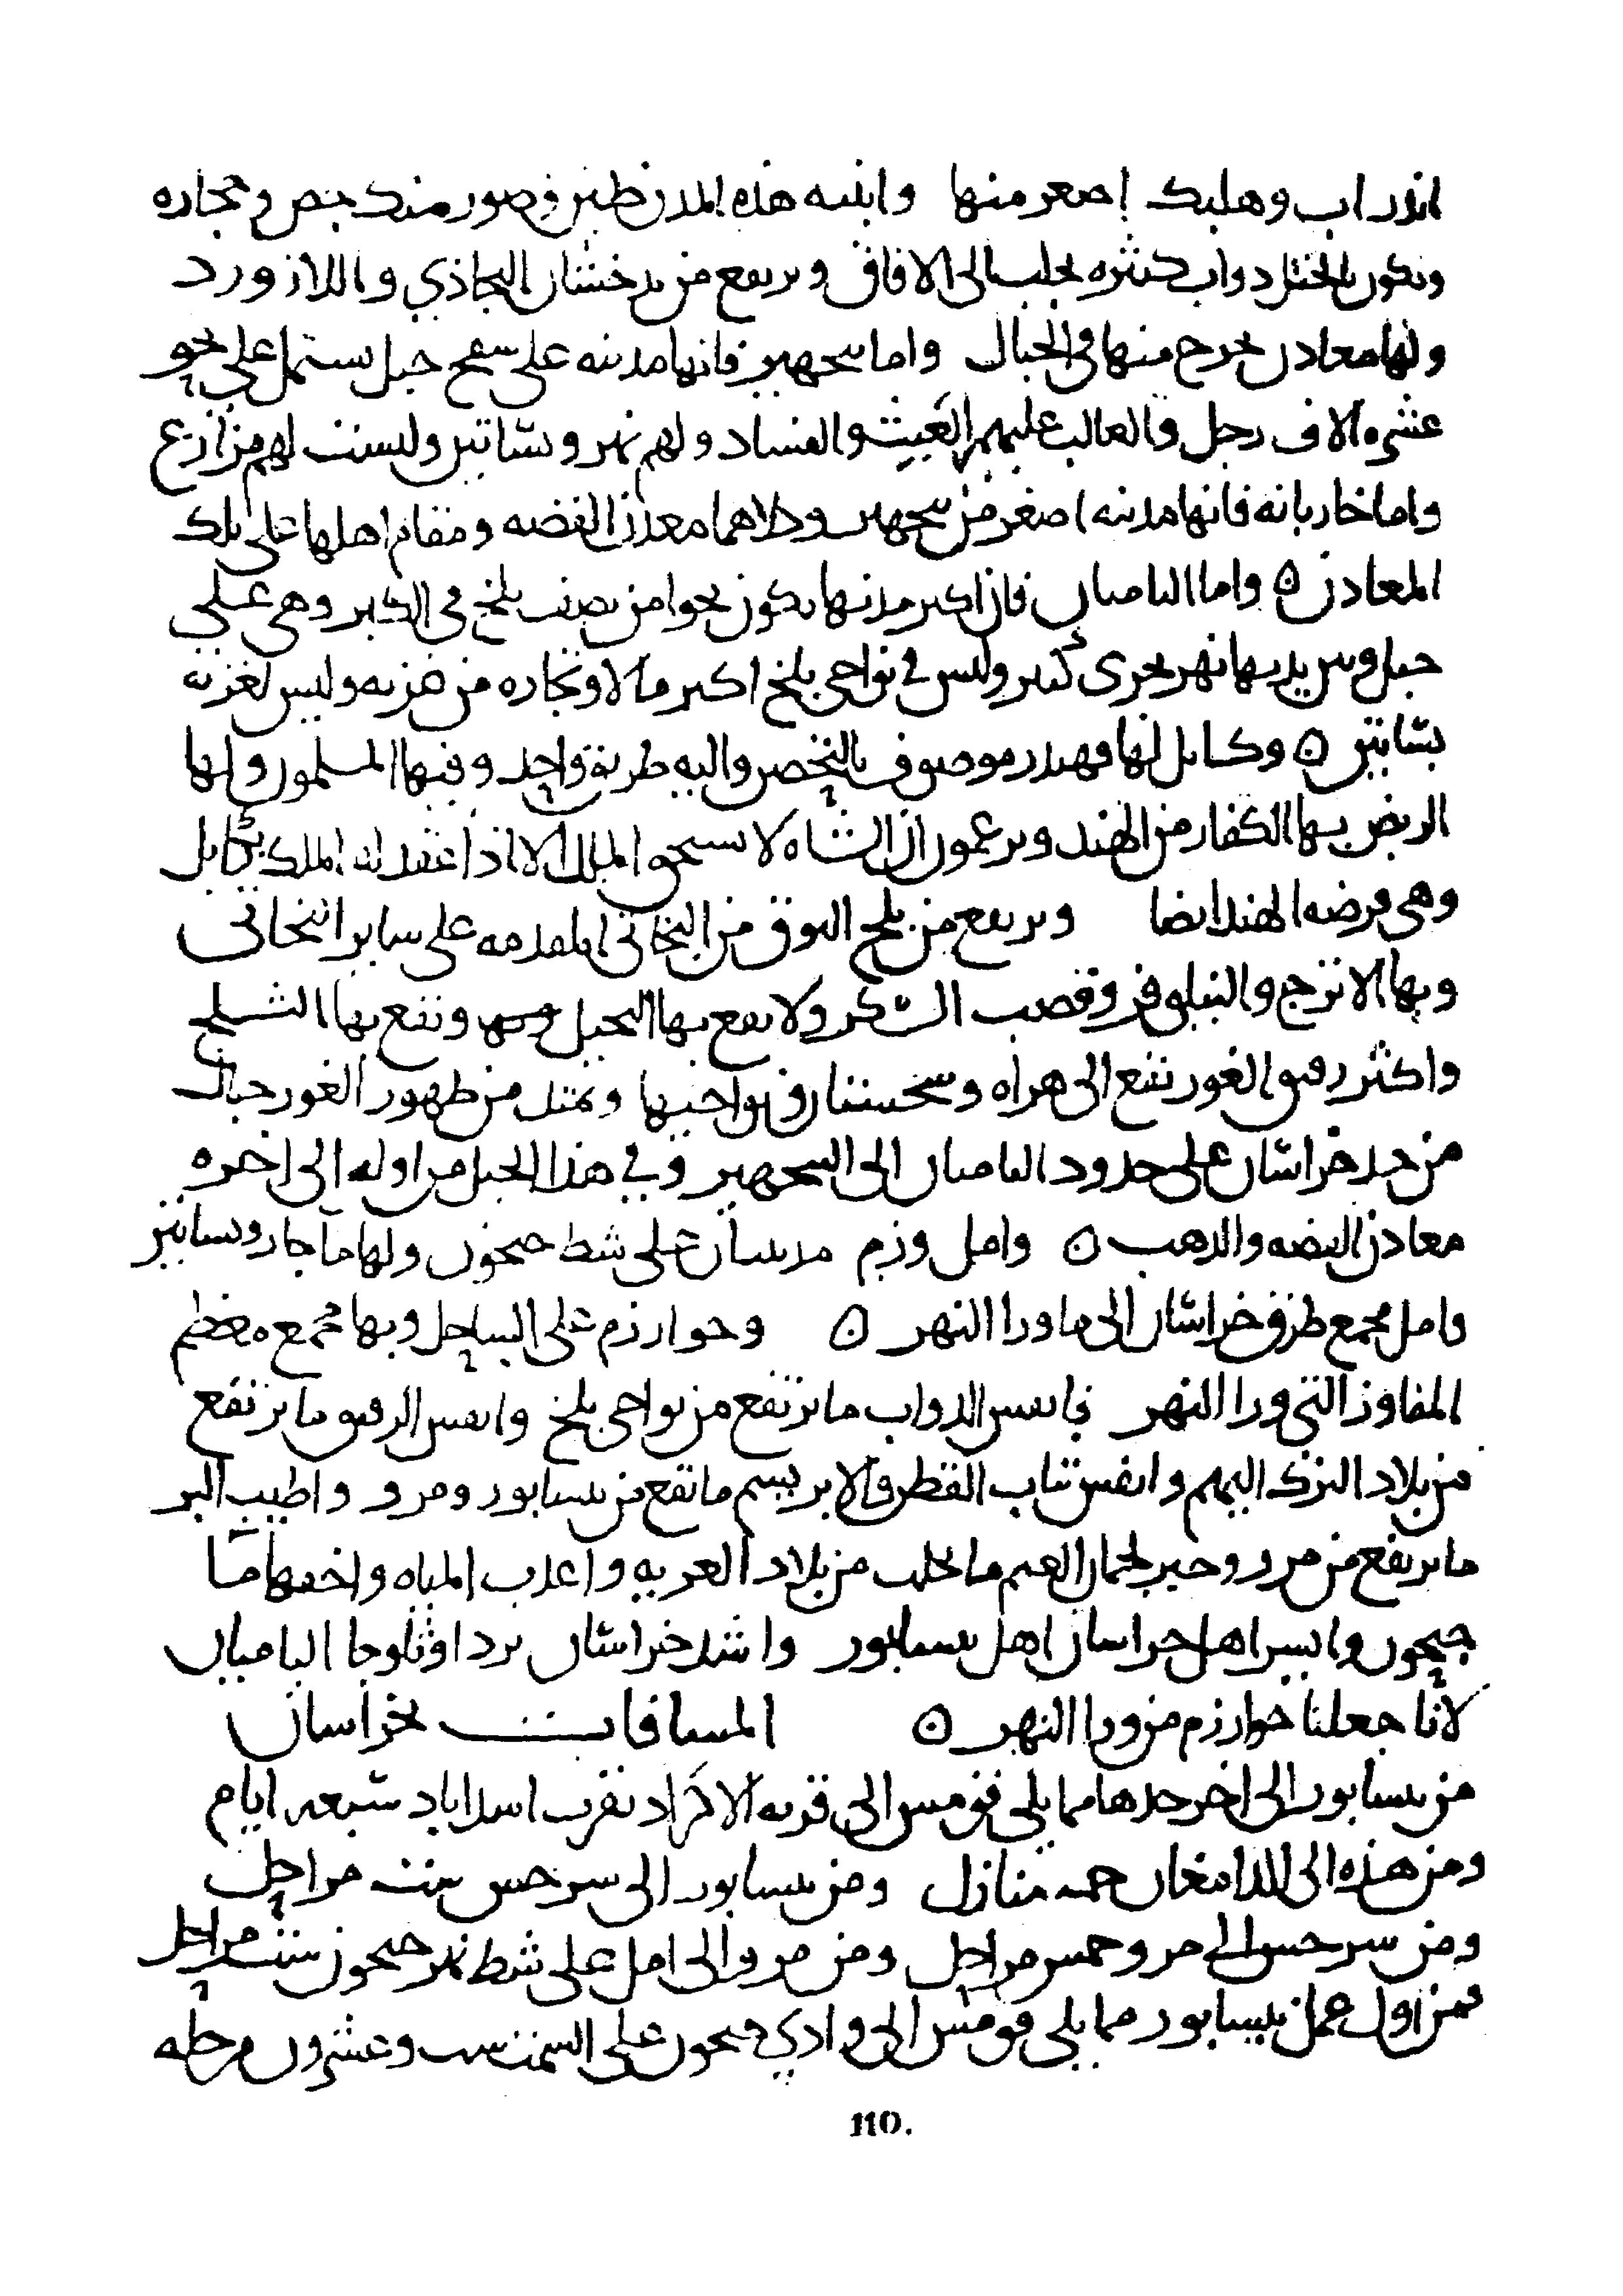 اندراب وهلبك اصغر منها وابنيه هذه المدن طين وصور منك جص وحجاره
ويكون بالختل دواب كثيره تجلب الى الافاق ويرتفع من بدخشان البجاذي واللازورد
ولها معادن تخرج منها في الجبال واما بنجهير فانها مدينه على سفح جبل يشتمل على نحو
عشره الاف رجل والغالب عليهم العيث والفساد ولهم نهر وبساتين وليست لهم مزارع
واما خاربانه فانها مدينه اصغر من بنجهير وكلاهما معدن الفضه ومقام اهلها على تلك
المعادن ه واما الباميان فان اكبر مدنها يكون نحوا من نصف بلخ في الكبر وهي على
جبل وبين يديها نهر يجري كبير وليس في نواحي بلخ اكثر مالا وتجاره من غزنه وليس لغزنه
بساتين ه وكابل لها قهندز موصوف بالتحصن واليه طريق واحد وفيها المسلمون ولها
الربض بها الكفار من الهند ويزعمون ان الشاه لا يستحق الملك الا اذا عقد له الملك بكابل
وهي فرضه الهند ايضا ويرتفع من بلخ النوق من البخاتي المقدمه على ساير البخاتي
وبها الاترج والنيلوفر وقصب السكر ولا يقع بها النخيل وتقع بها الثلج
واكثر رقيق الغور تقع الى هراه وسجستان ونواحيها ويمتد من ظهور الغور جبال
من حد خراسان على حدود الباميان الى البنجهير وفي هذا الجبل من اوله الى اخره
معادن الفضه والذهب ه وامل وزم مدينتان على شط جيحون ولها ما جار وبساتين
وامل مجمع طرق خراسان الى ما ورا النهر ه وخوارزم على الساحل وبها مجمع معظم
المفاوز التي ورا النهر فانفس الدواب ما ترتفع من نواحي بلخ وانفس الرقيق ما يرتفع
من بلاد الترك اليهم وانفس ثياب القطن والابريسم ما تقع من نيسابور ومرو واطيب البز
ما يرتفع من مرو وخير لحمان الغنم ما يجلب من بلاد الغزيه واعذب المياه واخفها ما
جيحون وايسر اهل خراسان اهل نيسابور واشد خراسان بردا وثلوجا الباميان
لانا جعلنا خوارزم من ورا النهر ه المسافات بخراسان
من نيسابور الى اخر حدها مما يلي قومس الى قريه الاكراد بقرب اسداباد سبعه ايام
ومن هذه الى الدامغان خمسه منازل ومن نيسابور الى سرخس ست مراحل
ومن سرخس الى مرو خمس مراحل ومن مرو الى امل على شط نهر جيحون ست مراحل
فمن اول عمل نيسابور مما يلي قومس الى وادي جيحون على السمت ست وعشرون مرحله
110.